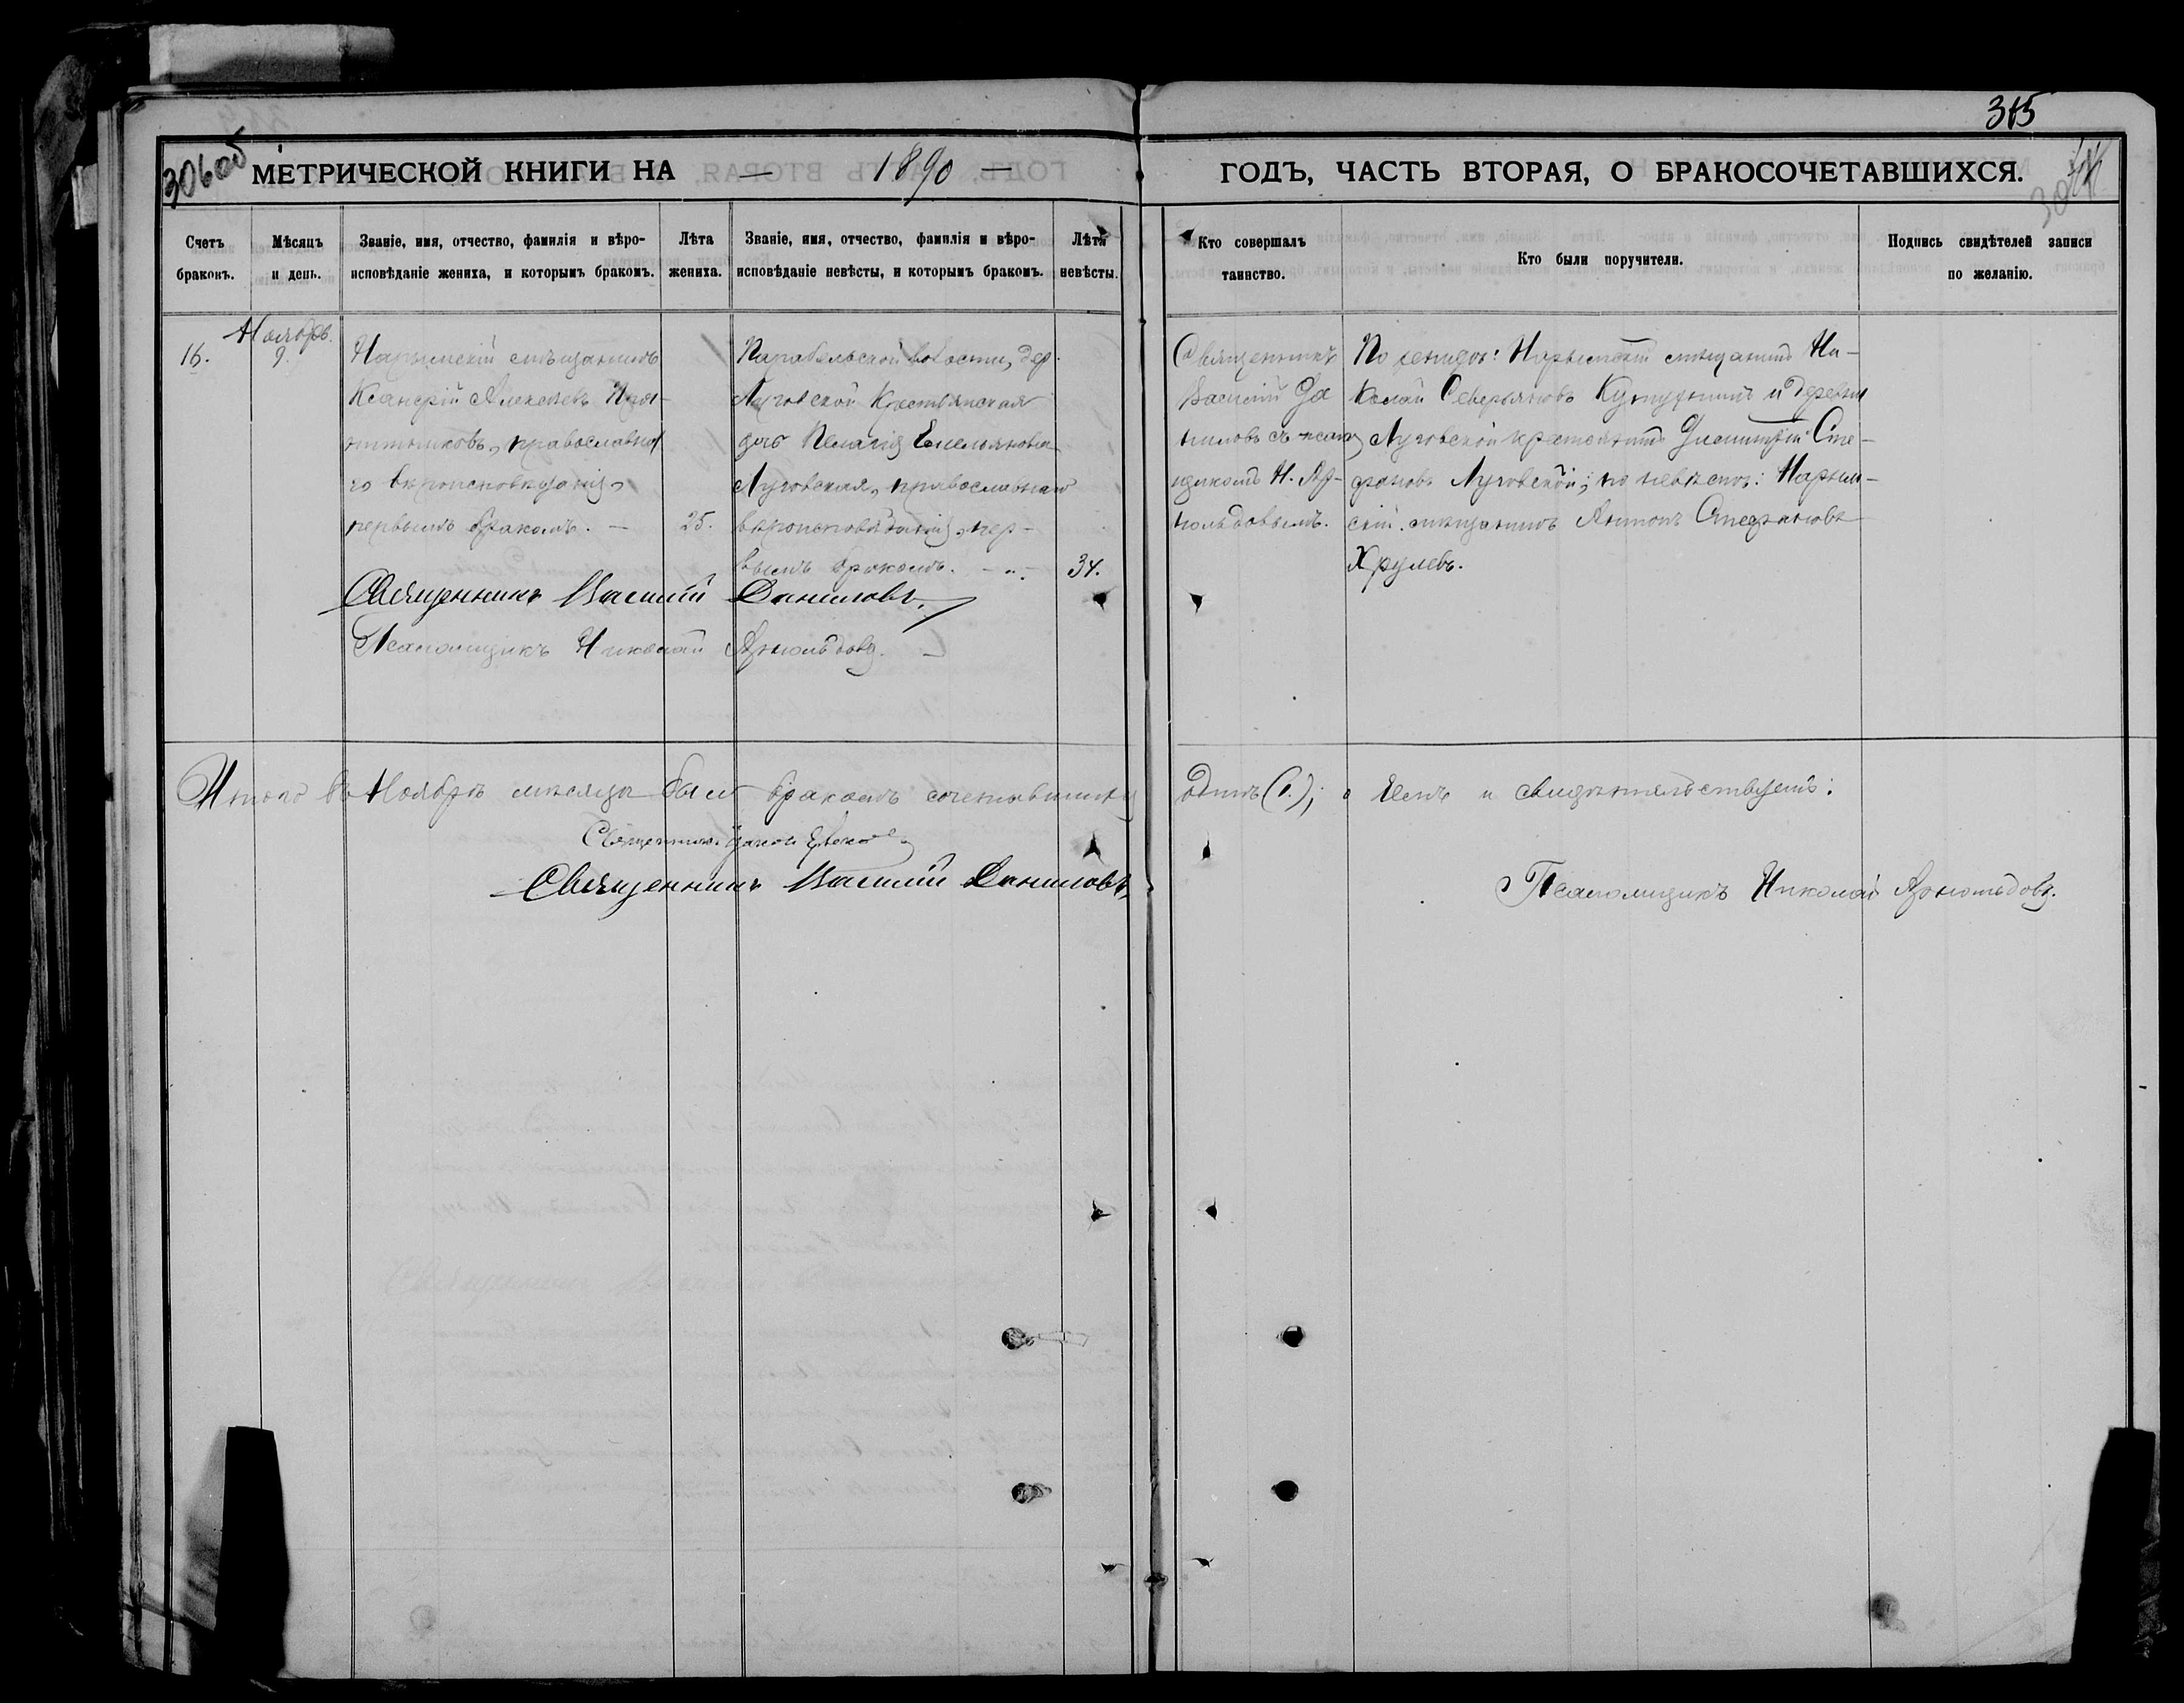 315
306об
МЕТРИЧЕСКОЙ КНИГИ НА — 1890 — ГОДЪ, ЧАСТЬ ВТОРАЯ, О БРАКОСОЧЕТАВШИХСЯ.
Счетъ браковъ.
Мѣсяцъ и день.
Званіе, имя, отчество, фамилія и вѣро-
исповѣданіе жениха, и которымъ бракомъ.
Лѣта
жениха.
Званіе, имя, отчество, фамилія и вѣро-
исповѣданіе невѣсты, и которымъ бракомъ.
Лѣта
невѣсты.
Кто совершалъ
таинство.
Кто были поручители.
Подпись свидѣтелей записи
по желанію.
16.
Ноябрь.
9.
Нарымскій мѣщанинъ
Алексѣевъ
православна
го вѣроисповѣданія,
первымъ бракомъ. —
25.
Парабельской волости, дер.
Луговской крестьянская
дочь Пелагія Емельянова
Луговская, православнаго
вѣроисповѣданія, пер-
вымъ бракомъ. — „ —
34.
Священникъ
Василій Да
ниловъ съ псало
мщикомъ Н. Ар-
нольдовымъ.
По женихѣ: Нарымскій мѣщанинъ Ни-
колай Северьяновъ и деревни
Луговской крестьянинъ Димитрій Сте-
фановъ Луговской; по невѣстѣ: Нарым-
скій мѣщанинъ Антонъ Стефановъ
Хрулевъ.
Священникъ Василій Даниловъ.
Псаломщикъ Николай Арнольдовъ. —
Итого въ Ноябрѣ мѣсяцѣ бракомъ сочетавшихся одинъ (1.); въ чемъ и свидѣтельствуемъ:
Священникъ
Священникъ Василій Даниловъ,
Псаломщикъ Николай Арнольдовъ.